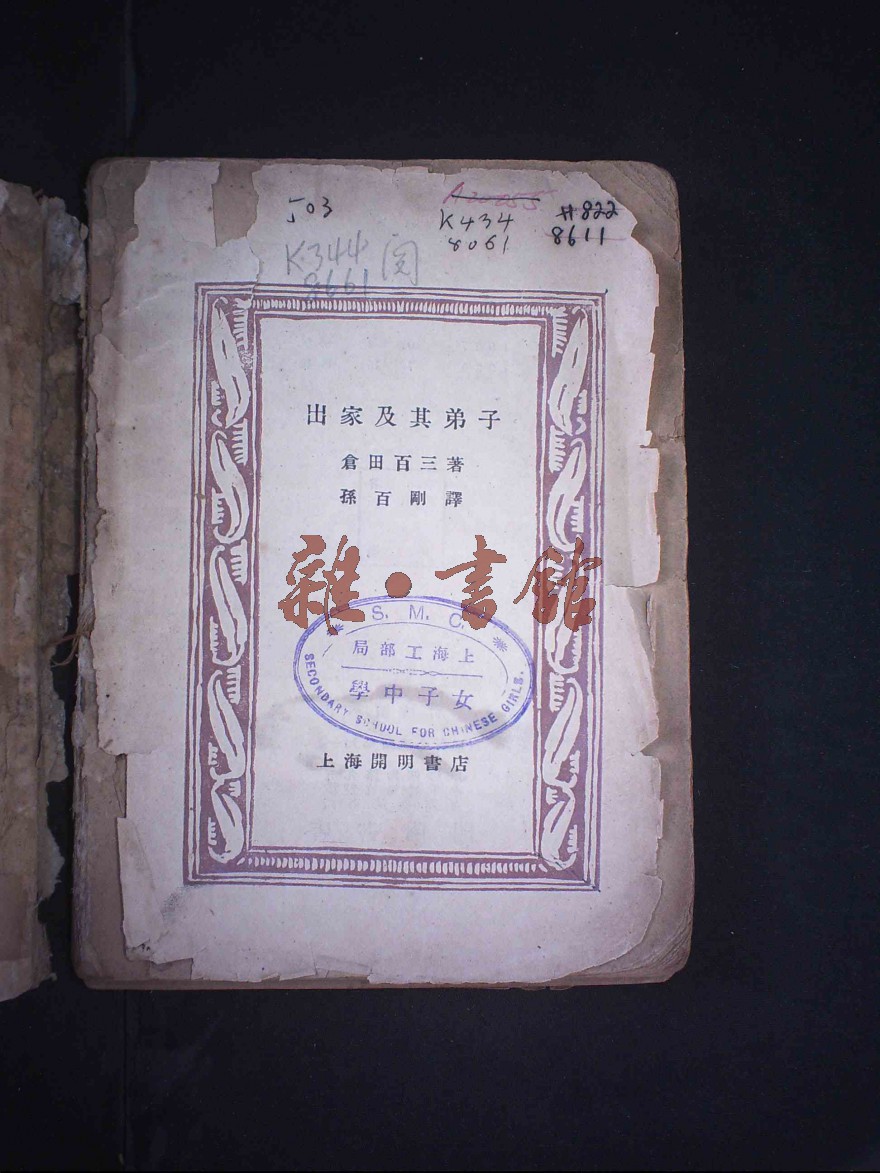 503
K434
8061
#822
8611
K344 閱
8661
出家及其弟子
倉田百三著
孫百剛譯
雜·書館
S. M. C.
上海工部局
女子中學
SECONDARY SCHOOL FOR CHINESE GIRLS.
上海開明書店